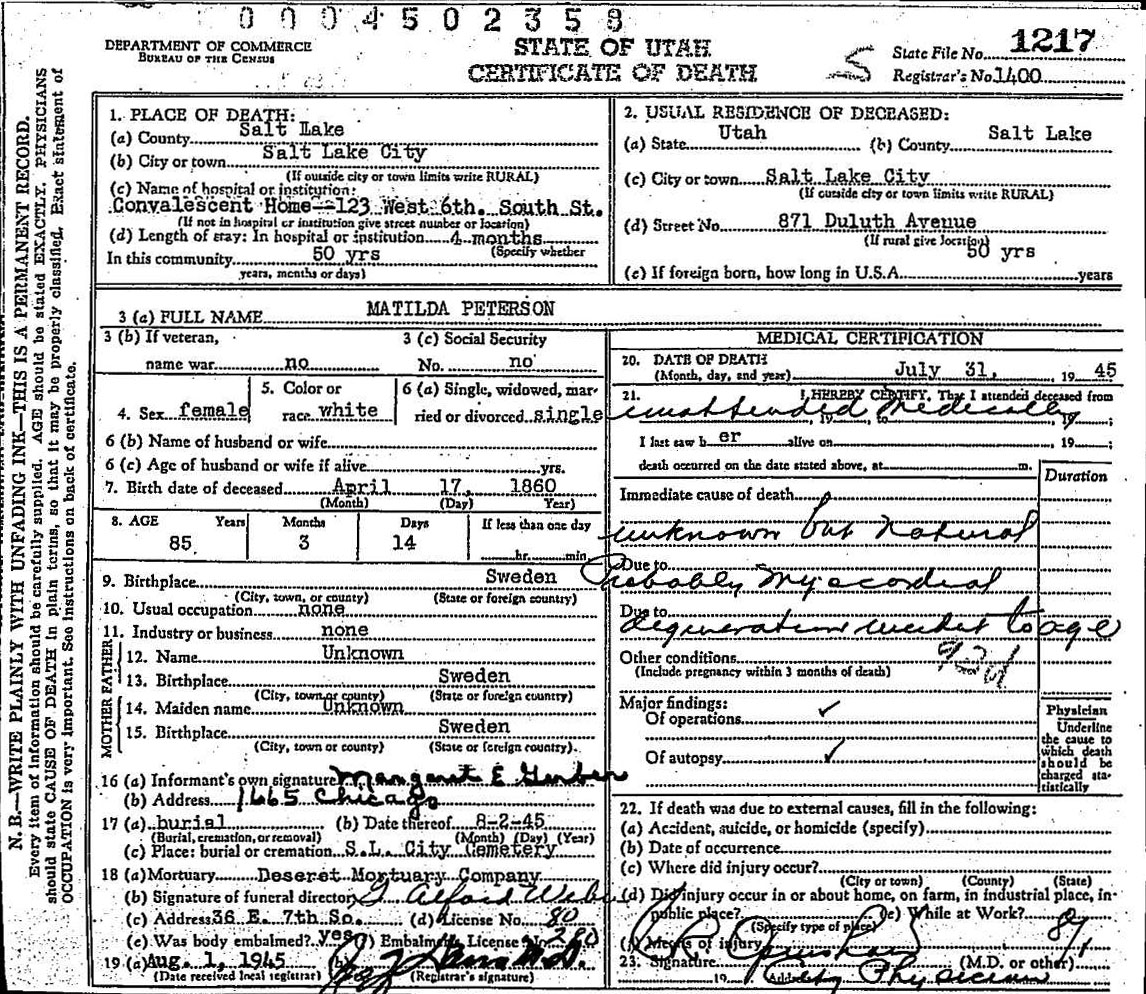 0004502358
DEPARTMENT OF COMMERCE
BUREAU OF THE CENSUS
STATE OF UTAH
CERTIFICATE OF DEATH
State File No. 1217
Registrar's No. 1400
N. B.—WRITE PLAINLY WITH UNFADING INK—THIS IS A PERMANENT RECORD.
Every item of information should be carefully supplied. AGE should be stated EXACTLY. PHYSICIANS
should state CAUSE OF DEATH in plain terms, so that it may be properly classified. Exact statement of
OCCUPATION is very important. See instructions on back of certificate.
1. PLACE OF DEATH:
(a) County Salt Lake
(b) City or town Salt Lake City
(If outside city or town limits write RURAL)
(c) Name of hospital or institution:
Convalescent Home--123 West 6th. South St.
(If not in hospital or institution give street number or location)
(d) Length of stay: In hospital or institution 4 months
(Specify whether
In this community 50 yrs
years, months or days)
2. USUAL RESIDENCE OF DECEASED:
(a) State Utah (b) County Salt Lake
(c) City or town Salt Lake City
(If outside city or town limits write RURAL)
(d) Street No. 871 Duluth Avenue
(If rural give location)
50 yrs
(e) If foreign born, how long in U.S.A. years
3 (a) FULL NAME MATILDA PETERSON
3 (b) If veteran, 3 (c) Social Security
name war no No. no
4. Sex female 5. Color or race white 6 (a) Single, widowed, married or divorced single
6 (b) Name of husband or wife
6 (c) Age of husband or wife if alive yrs.
7. Birth date of deceased April 17, 1860
(Month) (Day) Year)
8. AGE Years Months Days If less than one day
85 3 14 hr. min.
9. Birthplace Sweden
(City, town, or county) (State or foreign country)
10. Usual occupation none
11. Industry or business none
FATHER
12. Name Unknown
13. Birthplace Sweden
(City, town or county) (State or foreign country)
MOTHER
14. Maiden name Unknown
15. Birthplace Sweden
(City, town or county) (State or foreign country).
16 (a) Informant's own signature Margaret E Gerber
(b) Address 1665 Chicago
17 (a) burial (b) Date thereof 8-2-45
(Burial, cremation, or removal) (Month) (Day) (Year)
(c) Place: burial or cremation S.L. City Cemetery
18 (a) Mortuary Deseret Mortuary Company
(b) Signature of funeral director Alford
(c) Address 36 E. 7th So. (d) License No. 80
(e) Was body embalmed? yes (f) Embalmer's License No. 280
19 (a) Aug. 1, 1945 (b)
(Date received local registrar) (Registrar's signature)
MEDICAL CERTIFICATION
20. DATE OF DEATH
(Month, day, and year) July 31, 1945
21. I HEREBY CERTIFY, That I attended deceased from
unattended Medically 19 to 19 ;
I last saw h er alive on , 19 ;
death occurred on the date stated above, at m.
Duration
Immediate cause of death
unknown but natural
Due to
Probably Myocordial
Due to
degeneration incident to age
Other conditions 93d
(Include pregnancy within 3 months of death)
Major findings:
Of operations ✓
Of autopsy ✓
Physician
Underline
the cause to
which death
should be
charged sta-
tistically
22. If death was due to external causes, fill in the following:
(a) Accident, suicide, or homicide (specify)
(b) Date of occurrence
(c) Where did injury occur?
(City or town) (County) (State)
(d) Did injury occur in or about home, on farm, in industrial place, in
public place? (e) While at Work?
(Specify type of place)
(f) Means of injury
23. Signature (M.D. or other)
19 Address City Physician